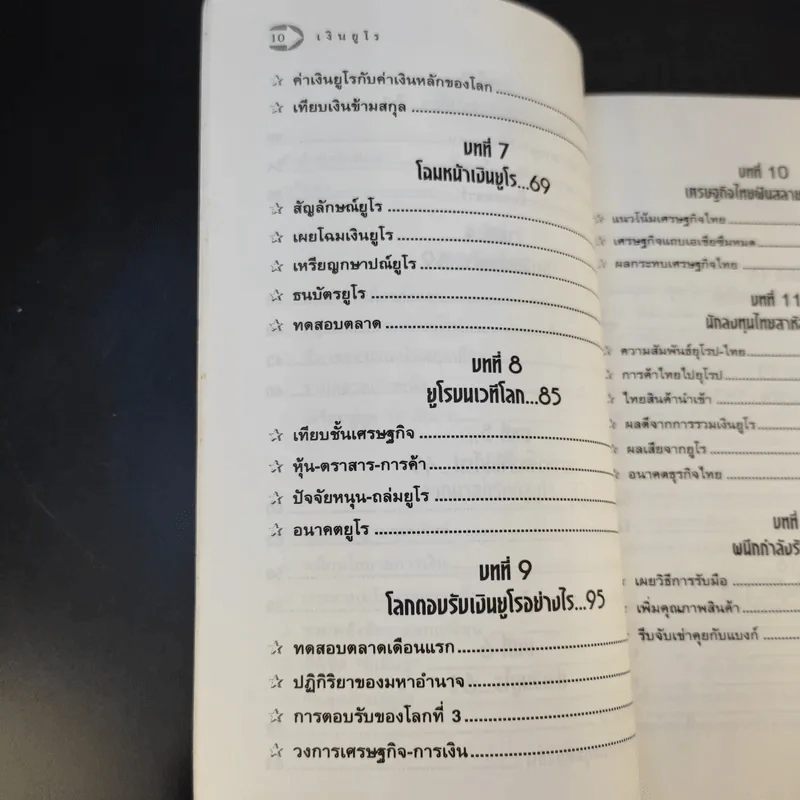 10 เงินยูโร
☆ ค่าเงินยูโรกับค่าเงินหลักของโลก
☆ เทียบเงินข้ามสกุล
บทที่ 7
โฉมหน้าเงินยูโร...69
☆ สัญลักษณ์ยูโร
☆ เผยโฉมเงินยูโร
☆ เหรียญกษาปณ์ยูโร
☆ ธนบัตรยูโร
☆ ทดสอบตลาด
บทที่ 8
ยูโรบนเวทีโลก...85
☆ เทียบชั้นเศรษฐกิจ
☆ หุ้น-ตราสาร-การค้า
☆ ปัจจัยหนุน-ถล่มยูโร
☆ อนาคตยูโร
บทที่ 9
โลกตอบรับเงินยูโรอย่างไร...95
☆ ทดสอบตลาดเดือนแรก
☆ ปฏิกิริยาของมหาอำนาจ
☆ การตอบรับของโลกที่ 3
☆ วงการเศรษฐกิจ-การเงิน
บทที่ 10
เศรษฐกิจไทยฝันสลาย
☆ แนวโน้มเศรษฐกิจไทย
☆ เศรษฐกิจแถบเอเชียซึมหมด
☆ ผลกระทบเศรษฐกิจไทย
บทที่ 11
นักลงทุนไทยสาหั
☆ ความสัมพันธ์ยุโรป-ไทย
☆ การค้าไทยไปยุโรป
☆ ไทยสินค้านำเข้า
☆ ผลดีจากการรวมเงินยูโร
☆ ผลเสียจากยูโร
☆ อนาคตธุรกิจไทย
บทที่
ผนึกกำลังรั
☆ เผยวิธีการรับมือ
☆ เพิ่มคุณภาพสินค้า
☆ รีบจับเข่าคุยกับแบงก์